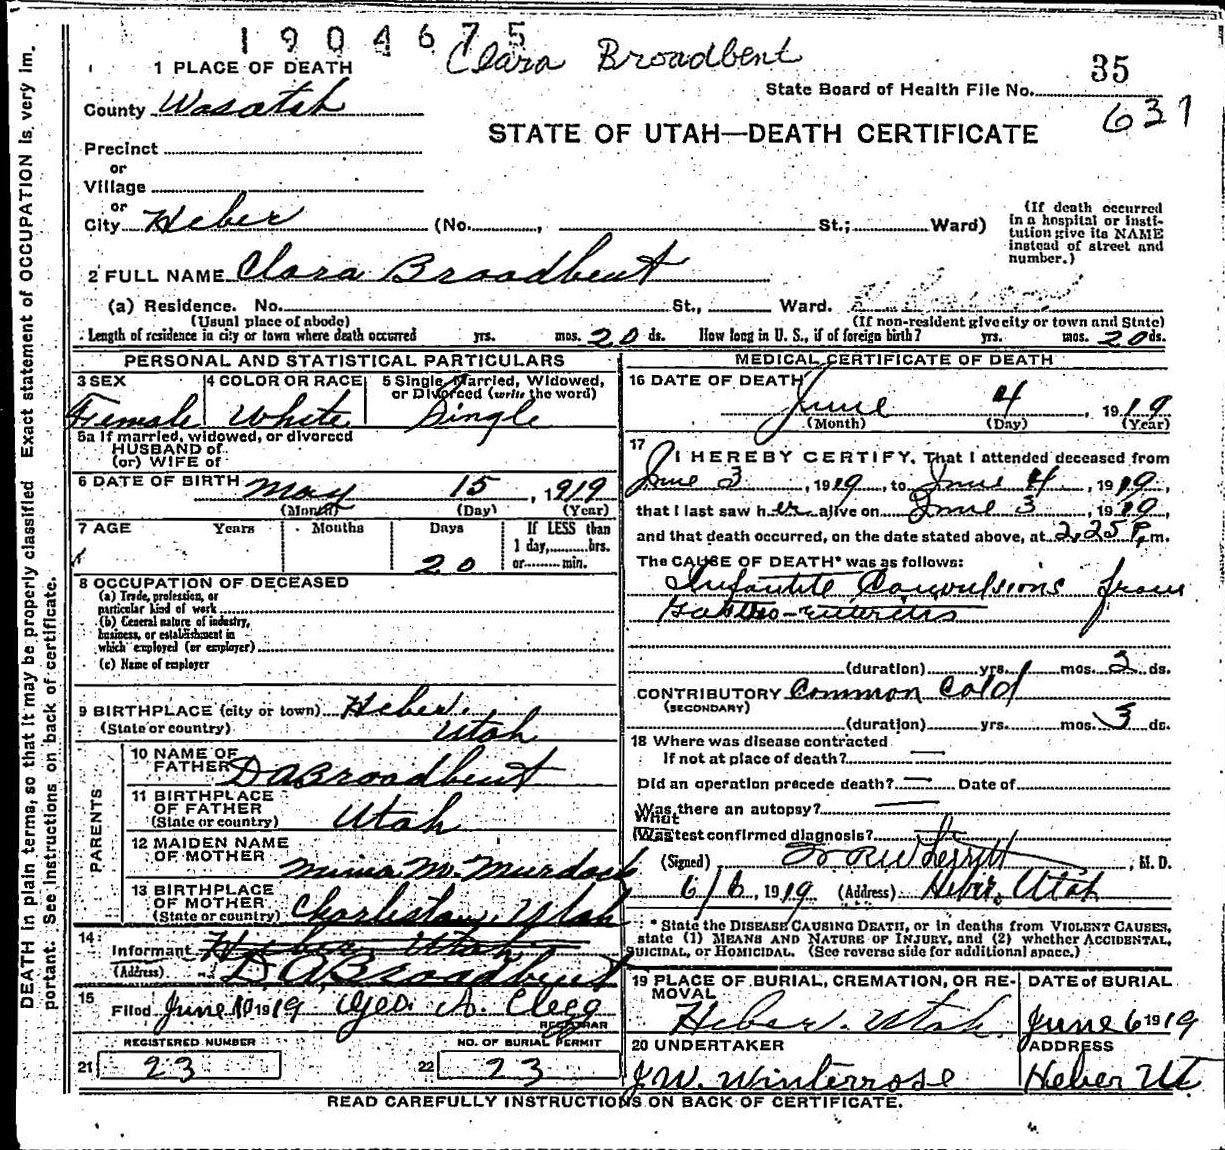 1904675
Clara Broadbent
35
State Board of Health File No.
637
1 PLACE OF DEATH
County Wasatch
STATE OF UTAH—DEATH CERTIFICATE
Precinct
or
Village
or
City Heber (No. , St.; Ward)
(If death occurred in a hospital or institution give its NAME instead of street and number.)
2 FULL NAME Clara Broadbent
(a) Residence. No. St., Ward.
(Usual place of abode) (If non-resident give city or town and State)
Length of residence in city or town where death occurred yrs. mos. 20 ds. How long in U. S., if of foreign birth? yrs. mos. 20 ds.
PERSONAL AND STATISTICAL PARTICULARS
3 SEX
Female
4 COLOR OR RACE
White
5 Single, Married, Widowed, or Divorced (write the word)
Single
5a If married, widowed, or divorced
HUSBAND of
(or) WIFE of
6 DATE OF BIRTH May 15, 1919
(Month) (Day) (Year)
7 AGE Years Months Days If LESS than
1 day, hrs.
20 or min.
8 OCCUPATION OF DECEASED
(a) Trade, profession, or
particular kind of work
(b) General nature of industry,
business, or establishment in
which employed (or employer)
(c) Name of employer
9 BIRTHPLACE (city or town) Heber.
(State or country) Utah
PARENTS
10 NAME OF
FATHER D A Broadbent
11 BIRTHPLACE
OF FATHER
(State or country) Utah
12 MAIDEN NAME
OF MOTHER Mima M. Murdock
13 BIRTHPLACE
OF MOTHER
(State or country) Charleston, Utah
14
Informant Heber Utah
(Address) D A Broadbent
15
Filed June 10 1919 Geo. A. Clegg
REGISTRAR
REGISTERED NUMBER NO. OF BURIAL PERMIT
21 23 22 23
MEDICAL CERTIFICATE OF DEATH
16 DATE OF DEATH
June 4, 1919
(Month) (Day) (Year)
17 I HEREBY CERTIFY, That I attended deceased from
June 3, 1919, to June 4, 1919,
that I last saw her alive on June 3, 1919,
and that death occurred, on the date stated above, at 2.25 P. m.
The CAUSE OF DEATH* was as follows:
Infantile Convulsions from
(duration) yrs. mos. 2 ds.
CONTRIBUTORY Common Cold
(SECONDARY)
(duration) yrs. mos. 3 ds.
18 Where was disease contracted
If not at place of death?
Did an operation precede death? Date of
Was there an autopsy?
What
(Was test confirmed diagnosis?
(Signed) , M. D.
6/6, 1919 (Address) Heber, Utah
* State the DISEASE CAUSING DEATH, or in deaths from VIOLENT CAUSES,
state (1) MEANS AND NATURE OF INJURY, and (2) whether ACCIDENTAL,
SUICIDAL, or HOMICIDAL. (See reverse side for additional space.)
19 PLACE OF BURIAL, CREMATION, OR REMOVAL
Heber. Utah.
DATE of BURIAL
June 6 1919
20 UNDERTAKER
J. W. Winterrose
ADDRESS
Heber Ut
READ CAREFULLY INSTRUCTIONS ON BACK OF CERTIFICATE.
DEATH in plain terms, so that it may be properly classified Exact statement of OCCUPATION is very im-
portant. See Instructions on back of certificate.